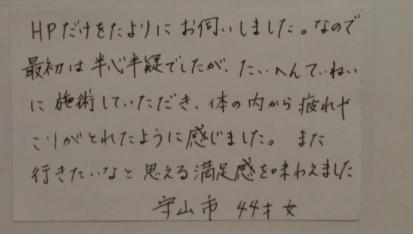 HPだけをたよりにお伺いしました。なので
最初は半心半疑でしたが、たいへんていねい
に施術していただき、体の内から疲れや
こりがとれたように感じました。また
行きたいなと思える満足感を味わえました
守山市 44才 女